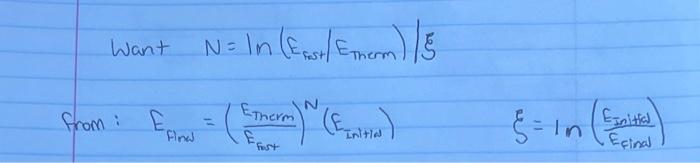 Want N = ln (E_Fast / E_Therm) / ξ
from : E_Final = (E_Therm / E_Fast)^N (E_Initial) ξ = ln (E_Initial / E_Final)